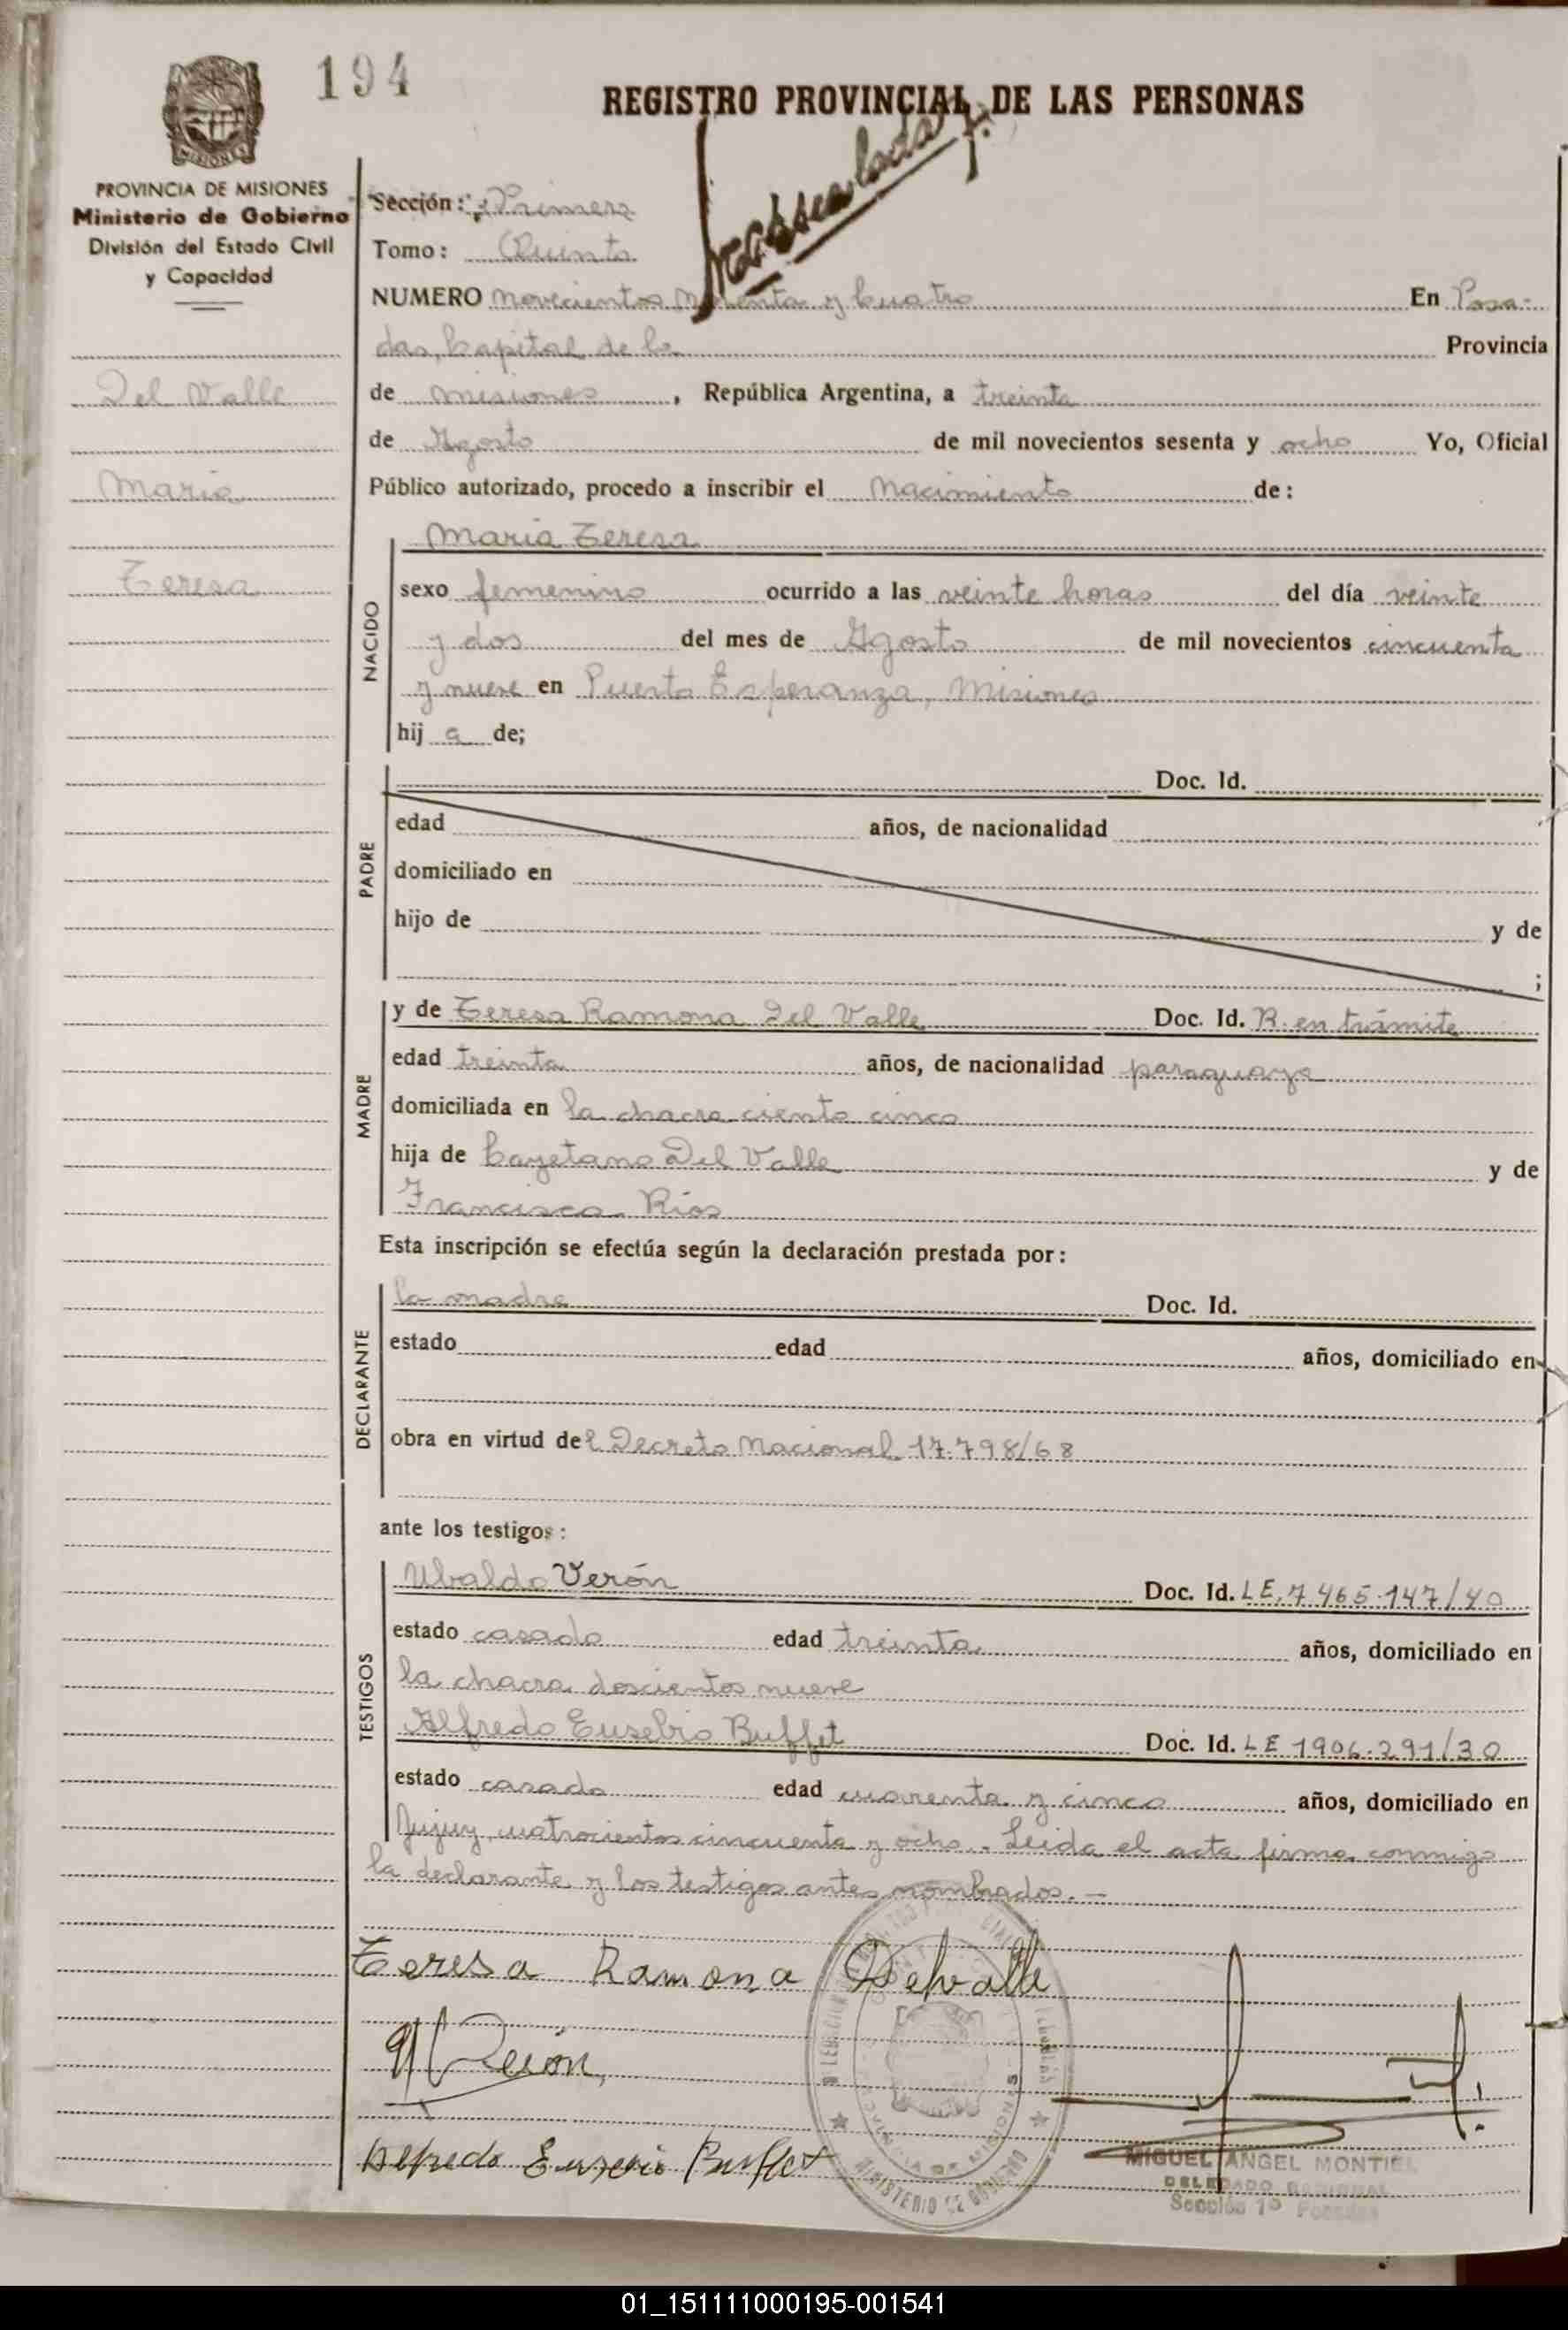 194
REGISTRO PROVINCIAL DE LAS PERSONAS
MISIONES
PROVINCIA DE MISIONES
Ministerio de Gobierno
División del Estado Civil
y Capacidad
Del Valle
Maria
Teresa
Sección: Primera
Tomo: Quinto
NUMERO novecientos noventa y cuatro En Posa-
das, Capital de la Provincia
de Misiones, República Argentina, a treinta
de Agosto de mil novecientos sesenta y ocho Yo, Oficial
Público autorizado, procedo a inscribir el Nacimiento de:
NACIDO
Maria Teresa
sexo femenino ocurrido a las veinte horas del día veinte
y dos del mes de Agosto de mil novecientos cincuenta
y nueve en Puerto Esperanza, Misiones
hij a de;
PADRE
Doc. Id.
edad años, de nacionalidad
domiciliado en
hijo de y de
;
MADRE
y de Teresa Ramona Del Valle Doc. Id. R. en trámite
edad treinta años, de nacionalidad paraguaya
domiciliada en la chacra ciento cinco
hija de Cayetano Del Valle y de
Francisca Ríos
Esta inscripción se efectúa según la declaración prestada por:
DECLARANTE
la madre Doc. Id.
estado edad años, domiciliado en
obra en virtud del Decreto Nacional 17.798/68
ante los testigos:
TESTIGOS
Ubaldo Verón Doc. Id. LE. 7.465.147/40
estado casado edad treinta años, domiciliado en
la chacra doscientos nueve
Alfredo Eusebio Buffet Doc. Id. LE 1906.291/30
estado casado edad cuarenta y cinco años, domiciliado en
Jujuy cuatrocientos cincuenta y ocho.- Leida el acta firma conmigo
la declarante y los testigos antes nombrados.-
Teresa Ramona Delvalle
Verón
Alfredo Eusebio Buffet
MINISTERIO DE GOBIERNO
PROVINCIA DE MISIONES
MIGUEL ANGEL MONTIEL
DELEGADO
Sección 1ª Posadas
01_151111000195-001541